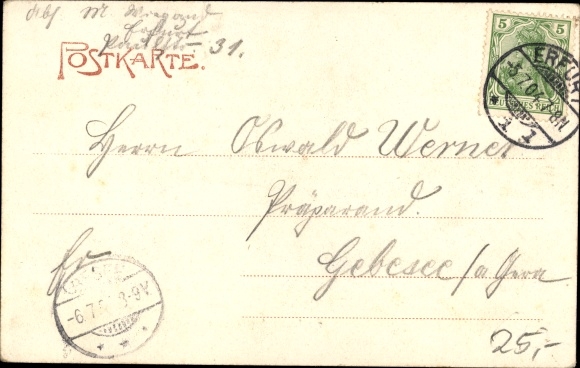 Abs. M. Wiegand
Erfurt
31.
POSTKARTE.
5 5
DEUTSCHES REICH
ERFURT
1
Herrn Oswald Werner
Präparand.
Gebesee /a Gera
-6.7.0 8-9V
* * *
25,-